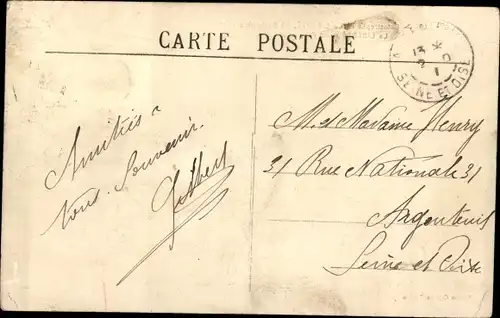 CARTE POSTALE
SEINE ET OISE
Amitiés à
tous. Souvenir.
Gilbert
M. et Madame Henry
31 Rue Nationale 31
Argenteuil
Seine et Oise